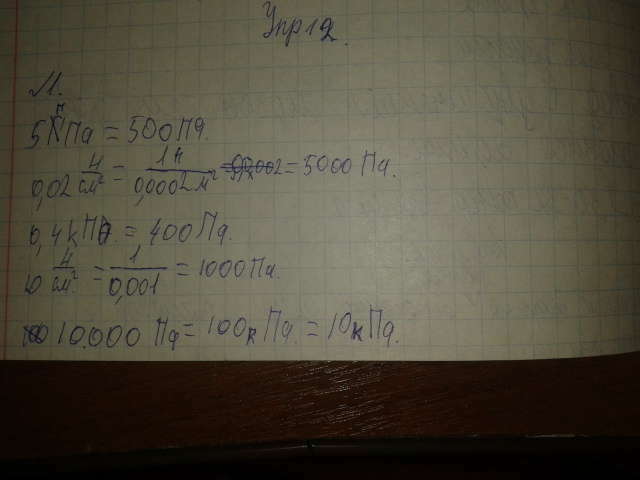 Упр 12.
№1.
5 гПа = 500 Па.
0,02 Н/см² = 1 Н/0,0002 м² = 5000 Па.
0,4 кПа. = 400 Па.
10 Н/см² = 1/0,001 = 1000 Па.
10.000 Па = 100 к Па. = 10 кПа.